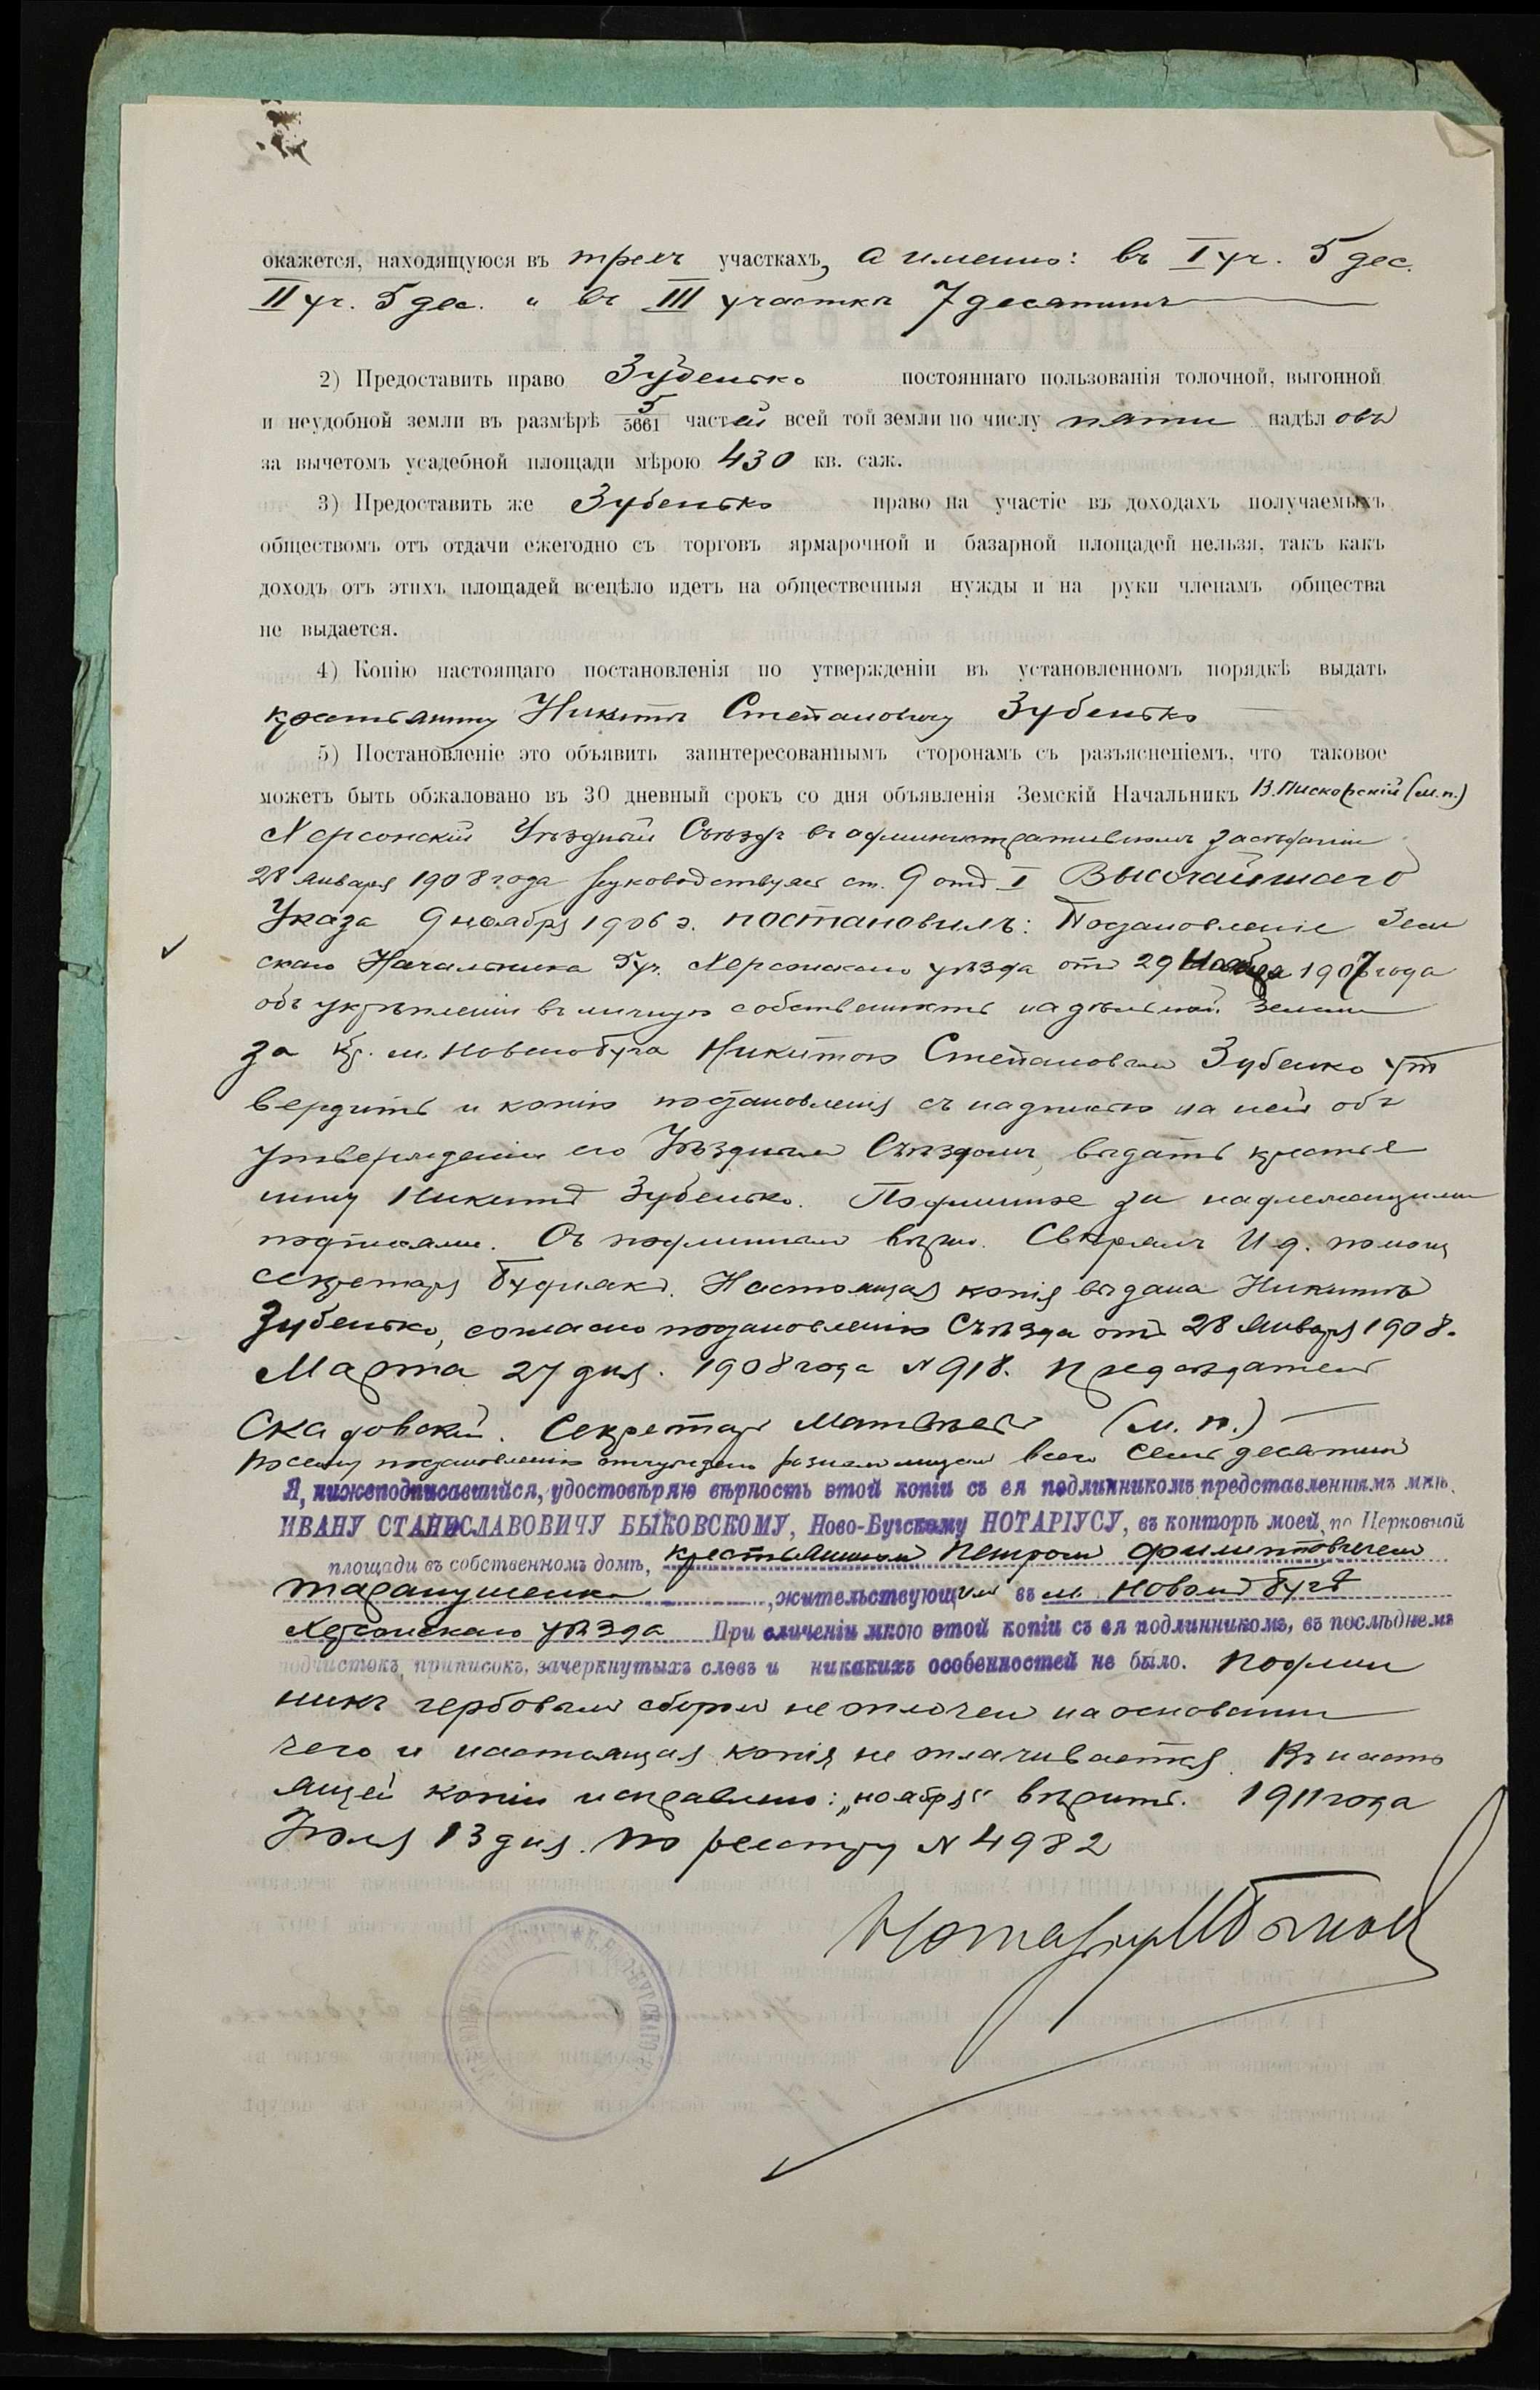 окажется, находящуюся въ трехъ участкахъ, а именно: въ I уч. 5 дес.
II уч. 5 дес. и въ III участкѣ 7 десятинъ
2) Предоставить право Зубенько постояннаго пользованія толочной, выгонной
и неудобной земли въ размѣрѣ 5/5661 частей всей той земли по числу пяти надѣловъ
за вычетомъ усадебной площади мѣрою 430 кв. саж.
3) Предоставить же Зубенько право на участіе въ доходахъ получаемыхъ
обществомъ отъ отдачи ежегодно съ торговъ ярмарочной и базарной площадей нельзя, такъ какъ
доходъ отъ этихъ площадей всецѣло идетъ на общественныя нужды и на руки членамъ общества
не выдается.
4) Копію настоящаго постановленія по утвержденіи въ установленномъ порядкѣ выдать
крестьянину Никитѣ Степановичу Зубенько
5) Постановленіе это объявить заинтересованнымъ сторонамъ съ разъясненіемъ, что таковое
можетъ быть обжаловано въ 30 дневный срокъ со дня объявленія Земскій Начальникъ В. Пискорскій (м.п.)
Херсонскій Уѣздный Съѣздъ въ административномъ засѣданіи
28 января 1908 года руководствуясь ст. 9 отд I Высочайшаго
Указа 9 ноября 1906 г. постановилъ: Постановленіе Зем
скаго Начальника 5 уч. Херсонскаго уѣзда отъ 29 Ноября 1907 года
объ укрѣпленіи въ личную собственность надѣльной земли
за кр. м. Новаго Буга Никитою Степановымъ Зубенко ут
вердить и копію постановленія съ надписью на ней объ
утвержденіи его Уѣзднымъ Съѣздомъ, выдать крестья
нину Никитѣ Зубенько. Подлинное за надлежащими
подписями. Съ подлиннымъ вѣрно. Свѣрялъ И д. помощ
секретаря Будлякъ. Настоящая копія выдана Никитѣ
Зубенько, согласно постановленію Съѣзда отъ 28 января 1908.
Марта 27 дня. 1908 года N 918. Предсѣдатель
Скадовскій. Секретарь Матвѣевъ (м. п.)
По сему постановленію отчуждено разнымъ лицамъ всего семь десятинъ
Я, нижеподписавшійся, удостовѣряю вѣрность этой копіи съ ея подлинникомъ представленнымъ мнѣ,
ИВАНУ СТАНИСЛАВОВИЧУ БЫКОВСКОМУ, Ново-Бугскому НОТАРІУСУ, въ конторѣ моей, по Церковной
площади въ собственномъ домѣ, крестьяниномъ Петромъ Филипповичемъ
Таранушенко, жительствующимъ въ м. Новомъ Бугѣ
Херсонскаго уѣзда При сличеніи мною этой копіи съ ея подлинникомъ, въ послѣднемъ
подчистокъ, приписокъ, зачеркнутыхъ словъ и никакихъ особенностей не было. Подлин
никъ гербовымъ сборомъ не оплоченъ на основаніи
чего и настоящая копія не оплачивается. Въ насто
ящей копіи исправлено: „ноября" вѣрить. 1911 года
Іюля 13 дня. По реестру N 4982
Нотаріусъ